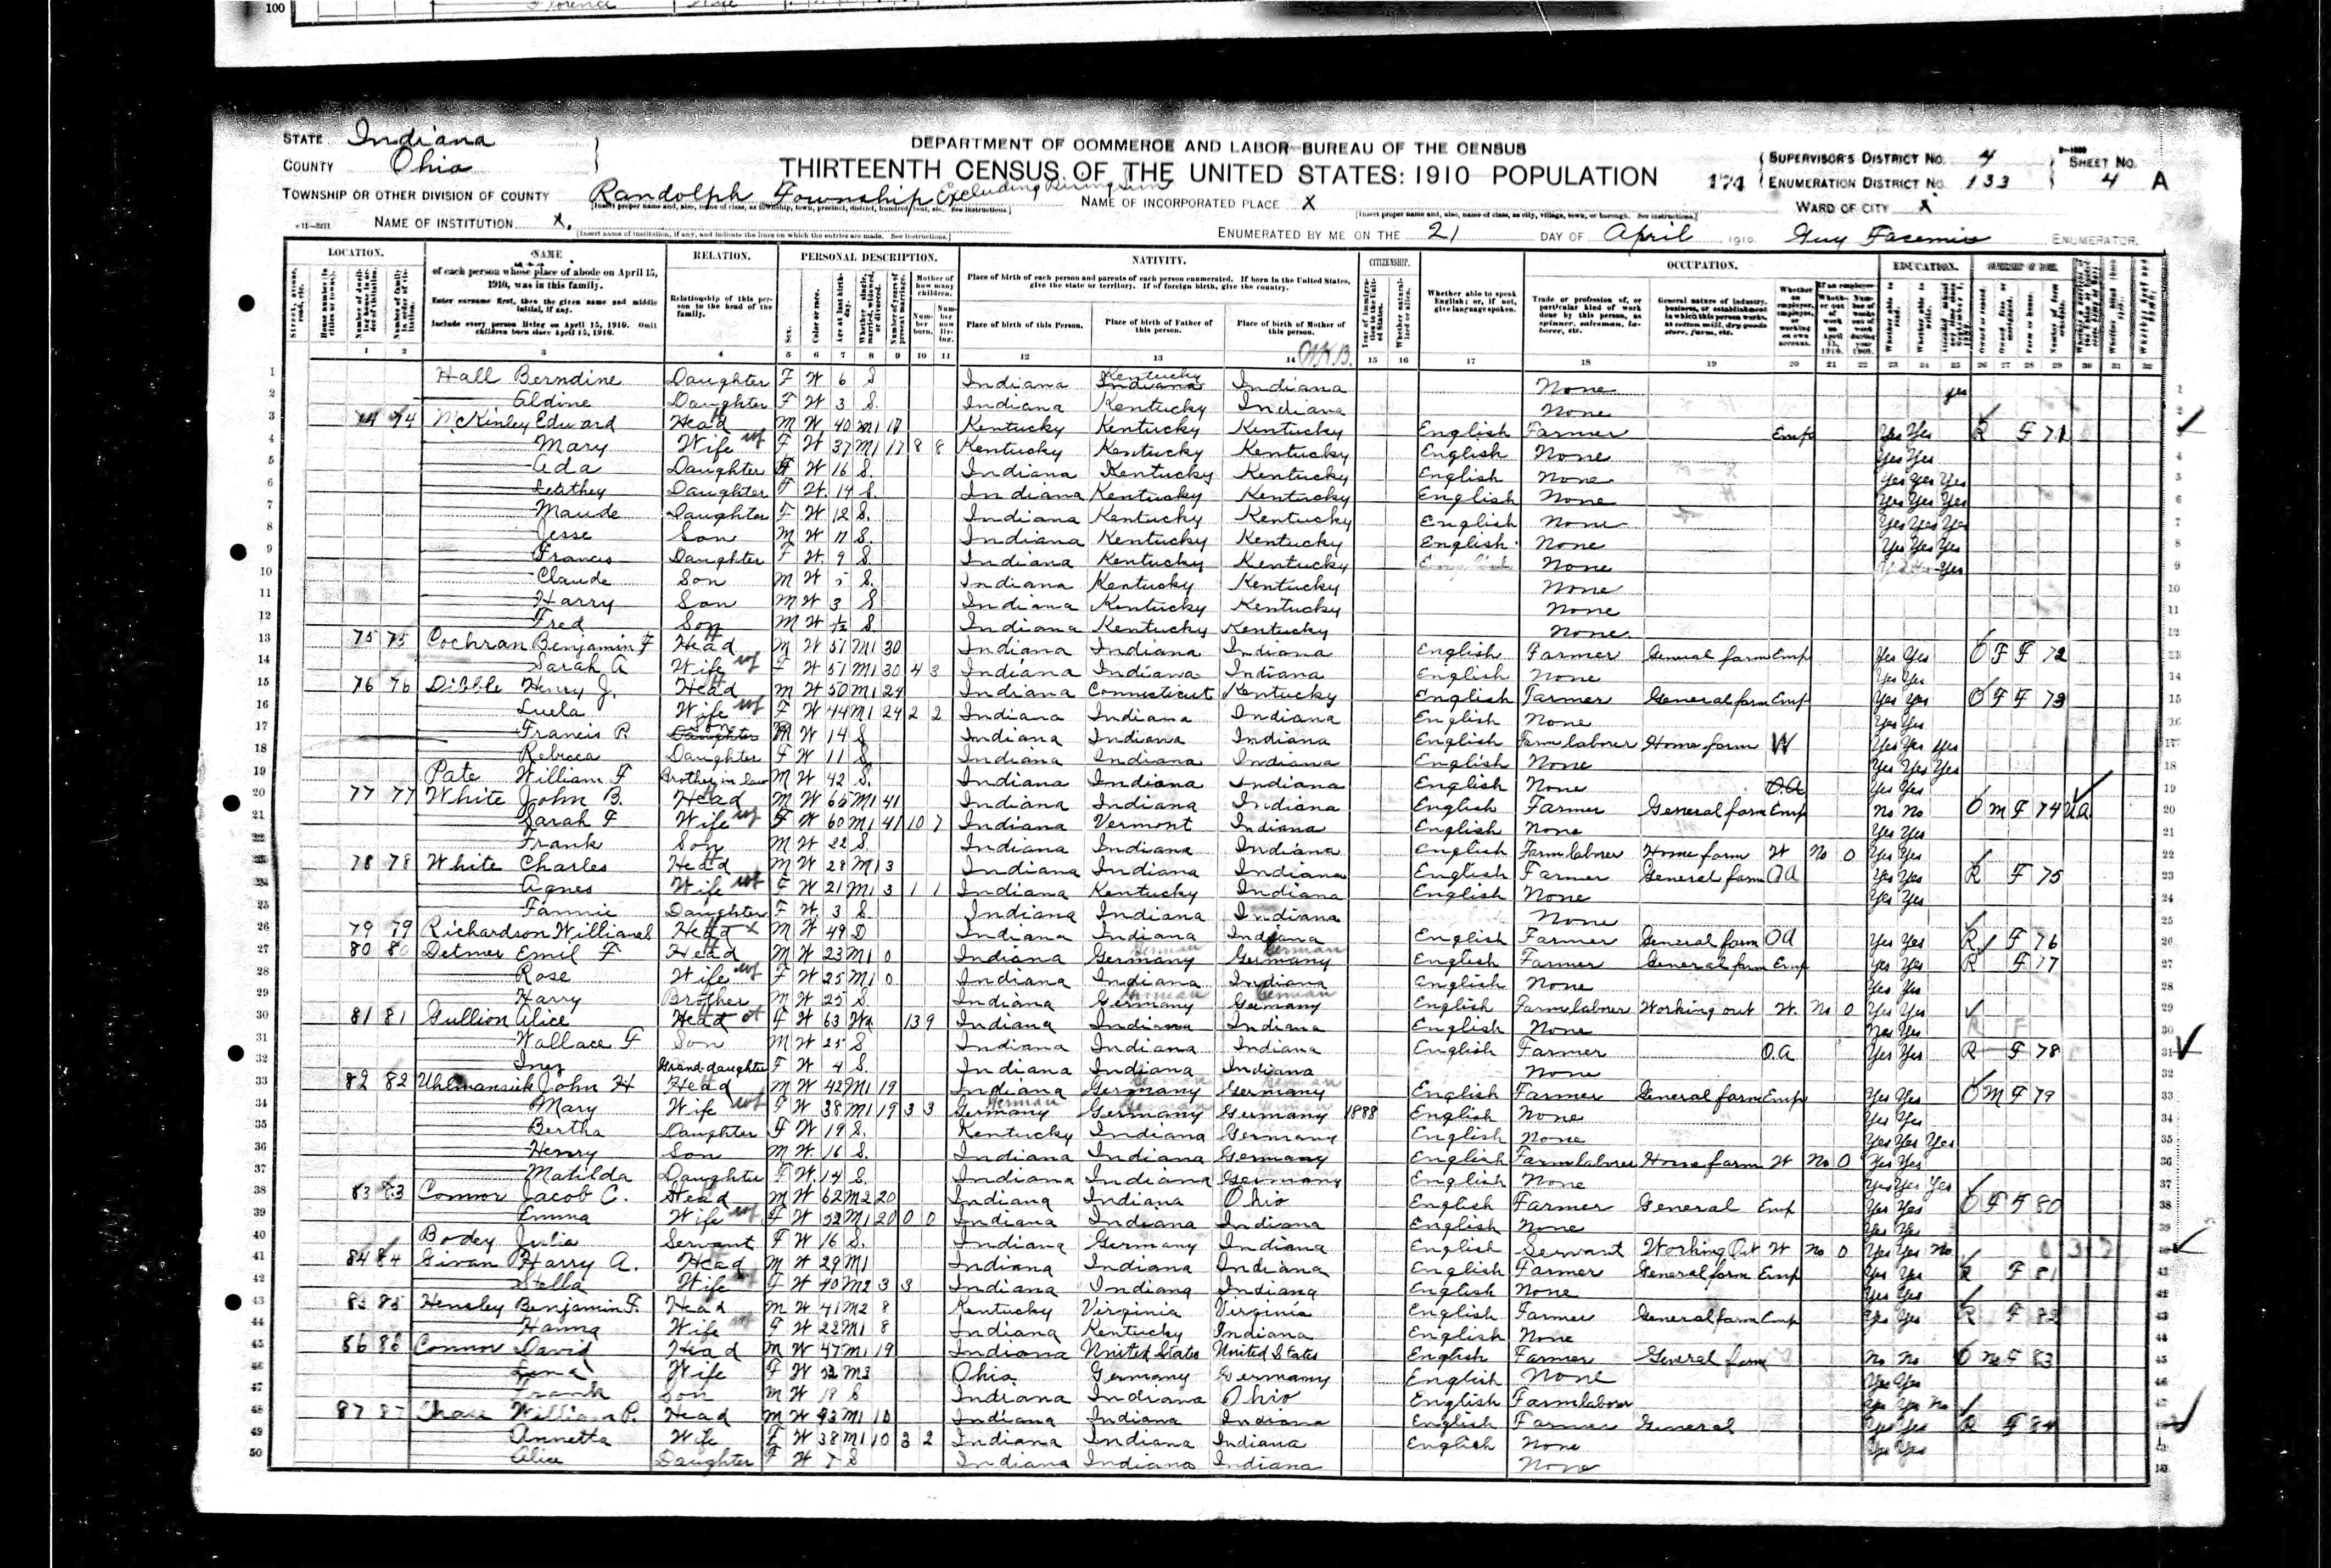 100 Florence
STATE Indiana
COUNTY Ohio
TOWNSHIP OR OTHER DIVISION OF COUNTY Randolph Township Excluding Rising Sun
NAME OF INSTITUTION X.
DEPARTMENT OF COMMERCE AND LABOR-BUREAU OF THE CENSUS
THIRTEENTH CENSUS OF THE UNITED STATES: 1910 POPULATION
NAME OF INCORPORATED PLACE X
SUPERVISOR'S DISTRICT NO. 4
ENUMERATION DISTRICT NO. 133
SHEET NO. 4 A
WARD OF CITY X
ENUMERATED BY ME ON THE 21 DAY OF April 1910. Guy ENUMERATOR.
LOCATION. NAME RELATION. PERSONAL DESCRIPTION. NATIVITY. CITIZENSHIP. OCCUPATION. EDUCATION.
of each person whose place of abode on April 15, 1910, was in this family.
Enter surname first, then the given name and middle initial, if any.
Include every person living on April 15, 1910. Omit children born since April 15, 1910.
Relationship of this person to the head of the family.
Place of birth of each person and parents of each person enumerated. If born in the United States, give the state or territory. If of foreign birth, give the country.
Place of birth of this Person. Place of birth of Father of this person. Place of birth of Mother of this person.
Whether able to speak English; or, if not, give language spoken.
1 2 3 4 5 6 7 8 9 10 11 12 13 14 15 16 17 18 19 20 21 22 23 24 25 26 27 28 29 30 31 32
1 Hall Berndine Daughter F W 6 S Indiana Kentucky Indiana Indiana None yes
2 Aldine Daughter F W 3 S. Indiana Kentucky Indiana None
3 74 74 McKinley Edward Head M W 40 M1 17 Kentucky Kentucky Kentucky English Farmer Emp Yes Yes R F 71
4 Mary Wife F W 37 M1 17 8 8 Kentucky Kentucky Kentucky English None Yes Yes
5 Ada Daughter F W 16 S. Indiana Kentucky Kentucky English None Yes Yes Yes
6 Daughter F W. 14 S. Indiana Kentucky Kentucky English None Yes Yes Yes
7 Maude Daughter F W 12 S. Indiana Kentucky Kentucky English None Yes Yes Yes
8 Jesse Son M W 11 S. Indiana Kentucky Kentucky English None Yes Yes Yes
9 Francis Daughter F W. 9 S. Indiana Kentucky Kentucky None Yes
10 Claude Son M W 5 S. Indiana Kentucky Kentucky None
11 Harry Son M W 3 S Indiana Kentucky Kentucky None
12 Fred Son M W S. Indiana Kentucky Kentucky None
13 75 75 Cochran Benjamin F Head M W 57 M1 30 Indiana Indiana Indiana English Farmer General farm Emp Yes Yes O F F 72
14 Sarah A Wife F W 51 M1 30 4 3 Indiana Indiana Indiana English None Yes Yes
15 76 76 Dibble Henry J. Head M W 50 M1 24 Indiana Connecticut Kentucky English Farmer General farm Emp Yes Yes O F F 73
16 Luela Wife F W 44 M1 24 2 2 Indiana Indiana Indiana English None Yes Yes
17 Francis R. Daughter Son M W 14 S Indiana Indiana Indiana English Farm laborer Home farm W Yes Yes Yes
18 Rebecca Daughter F W 11 S Indiana Indiana Indiana English None Yes Yes Yes
19 Pate William F Brother in law M W 42 S. Indiana Indiana Indiana English None O.A Yes Yes
20 77 77 White John B. Head M W 65 M1 41 Indiana Indiana Indiana English Farmer General farm Emp No No O M F 74 UA
21 Sarah F Wife F W 60 M1 41 10 7 Indiana Vermont Indiana English None Yes Yes
22 Frank Son M W 22 S. Indiana Indiana Indiana English Farm laborer Home farm W No 0 Yes Yes
23 78 78 White Charles Head M W 28 M1 3 Indiana Indiana Indiana English Farmer General farm OA Yes Yes R F 75
24 Agnes Wife F W 21 M1 3 1 1 Indiana Kentucky Indiana English None Yes Yes
25 Fannie Daughter F W. 3 S. Indiana Indiana Indiana None
26 79 79 Richardson William Head M W 49 D Indiana Indiana Indiana English Farmer General farm OA Yes Yes R F 76
27 80 80 Detmer Emil F Head M W 23 M1 0 Indiana Germany Germany English Farmer General farm Emp Yes Yes R F 77
28 Rose Wife F W 25 M1 0 Indiana Indiana Indiana English None Yes Yes
29 Harry Brother M W 25 S. Indiana Germany Germany English Farm laborer Working out W. No 0 Yes Yes
30 81 81 Gullion Alice Head F W 63 Wd 13 9 Indiana Indiana Indiana English None Yes Yes R F
31 Wallace F Son M W 25 S Indiana Indiana Indiana English Farmer O.A Yes Yes R F 78
32 Inez Grand-daughter F W 4 S. Indiana Indiana Indiana None
33 82 82 John H Head M W 42 M1 19 Indiana Germany Germany English Farmer General farm Emp Yes Yes O M F 79
34 Mary Wife F W 38 M1 19 3 3 Germany Germany Germany 1888 English None Yes Yes
35 Bertha Daughter F W 19 S. Kentucky Indiana Germany English None Yes Yes Yes
36 Henry Son M W 16 S. Indiana Indiana Germany English Farm laborer Home farm W No 0 Yes Yes
37 Matilda Daughter F W. 14 S. Indiana Indiana Germany English None Yes Yes Yes
38 83 83 Connor Jacob C. Head M W 62 M2 20 Indiana Indiana Ohio English Farmer General Emp Yes Yes O F F 80
39 Emma Wife F W 52 M1 20 0 0 Indiana Indiana Indiana English None Yes Yes
40 Bodey Julia Servant F W 16 S. Indiana Germany Indiana English Servant Working Out W No 0 Yes Yes No
41 84 84 Givan Harry A. Head M W 29 M1 Indiana Indiana Indiana English Farmer General farm Emp Yes Yes R F 81
42 Stella Wife F W 40 M2 3 3 Indiana Indiana Indiana English None Yes Yes
43 85 85 Hensley Benjamin F. Head M W 41 M2 8 Kentucky Virginia Virginia English Farmer General farm Emp Yes Yes R F 82
44 Hanna Wife F W 22 M1 8 Indiana Kentucky Indiana English None
45 86 86 Connor David Head M W 47 M1 19 Indiana United States United States English Farmer General farm No No O F 83
46 Lena Wife F W M2 Ohio Germany Germany English None Yes Yes
47 Frank Son M W 18 S Indiana Indiana Ohio English Farm laborer Yes Yes No
48 87 87 William P. Head M W 43 M1 10 Indiana Indiana Indiana English Farmer General Yes Yes R F 84
49 Annetta Wife F W 38 M1 10 3 2 Indiana Indiana Indiana English None Yes Yes
50 Alice Daughter F W 7 S Indiana Indiana Indiana None